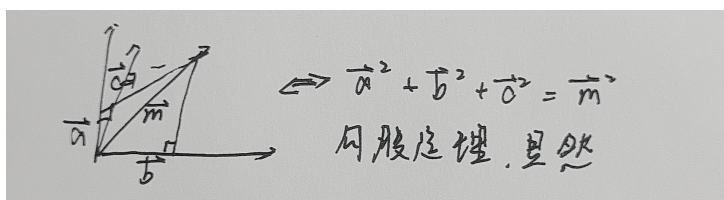 a⃗
c⃗
m⃗
b⃗
⇔ a⃗² + b⃗² + c⃗² = m⃗²
勾股定理.显然